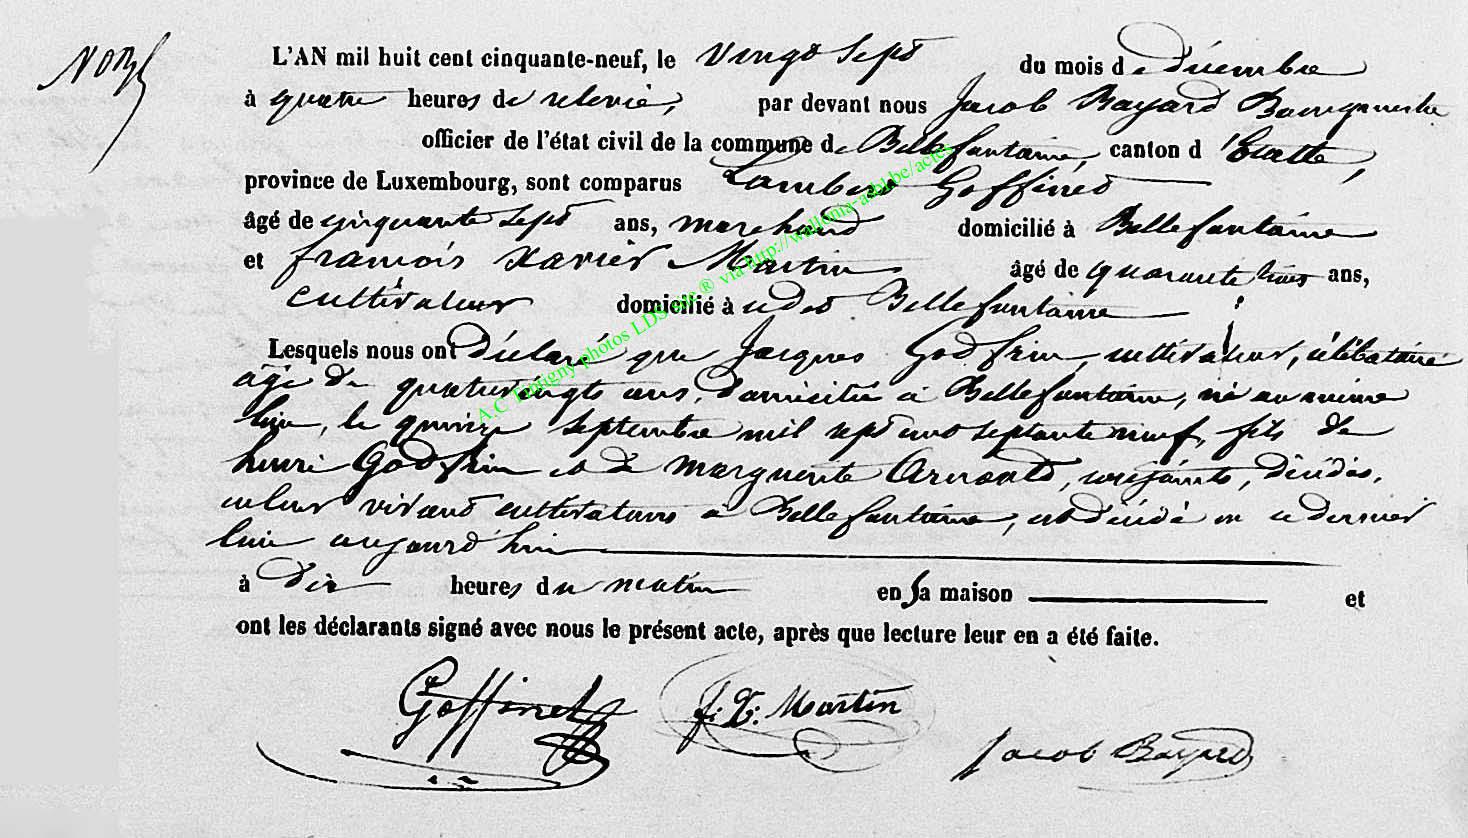 L'AN mil huit cent cinquante-neuf, le vingt sept du mois de décembre
à quatre heures de relevée, par devant nous Jacob Bayard Bourgmestre
officier de l'état civil de la commune de Bellefontaine, canton d'Etalle,
province de Luxembourg, sont comparus Lambert Goffinet
âgé de cinquante sept ans, marchand domicilié à Bellefontaine
et françois Xavier Martin âgé de quarante trois ans,
cultivateur domicilié à udit Bellefontaine
Lesquels nous ont déclaré que Jacques Godfrin, cultivateur, célibataire
âgé de quatrevingts ans, domicilié à Bellefontaine, né au même
lieu, le quinze septembre mil sept cent septante neuf, fils de
henri Godfrin et de marguerite Arnould, conjoints, décédés,
en leur vivant cultivateurs à Bellefontaine, est décédé en ce dernier
lieu aujourd'hui
à dix heures du matin en sa maison et
ont les déclarants signé avec nous le présent acte, après que lecture leur en a été faite.
Goffinet f: X: Martin
Jacob Bayard
A.C Tintigny photos LDS mic® via http://wallonia-asbl.be/actes